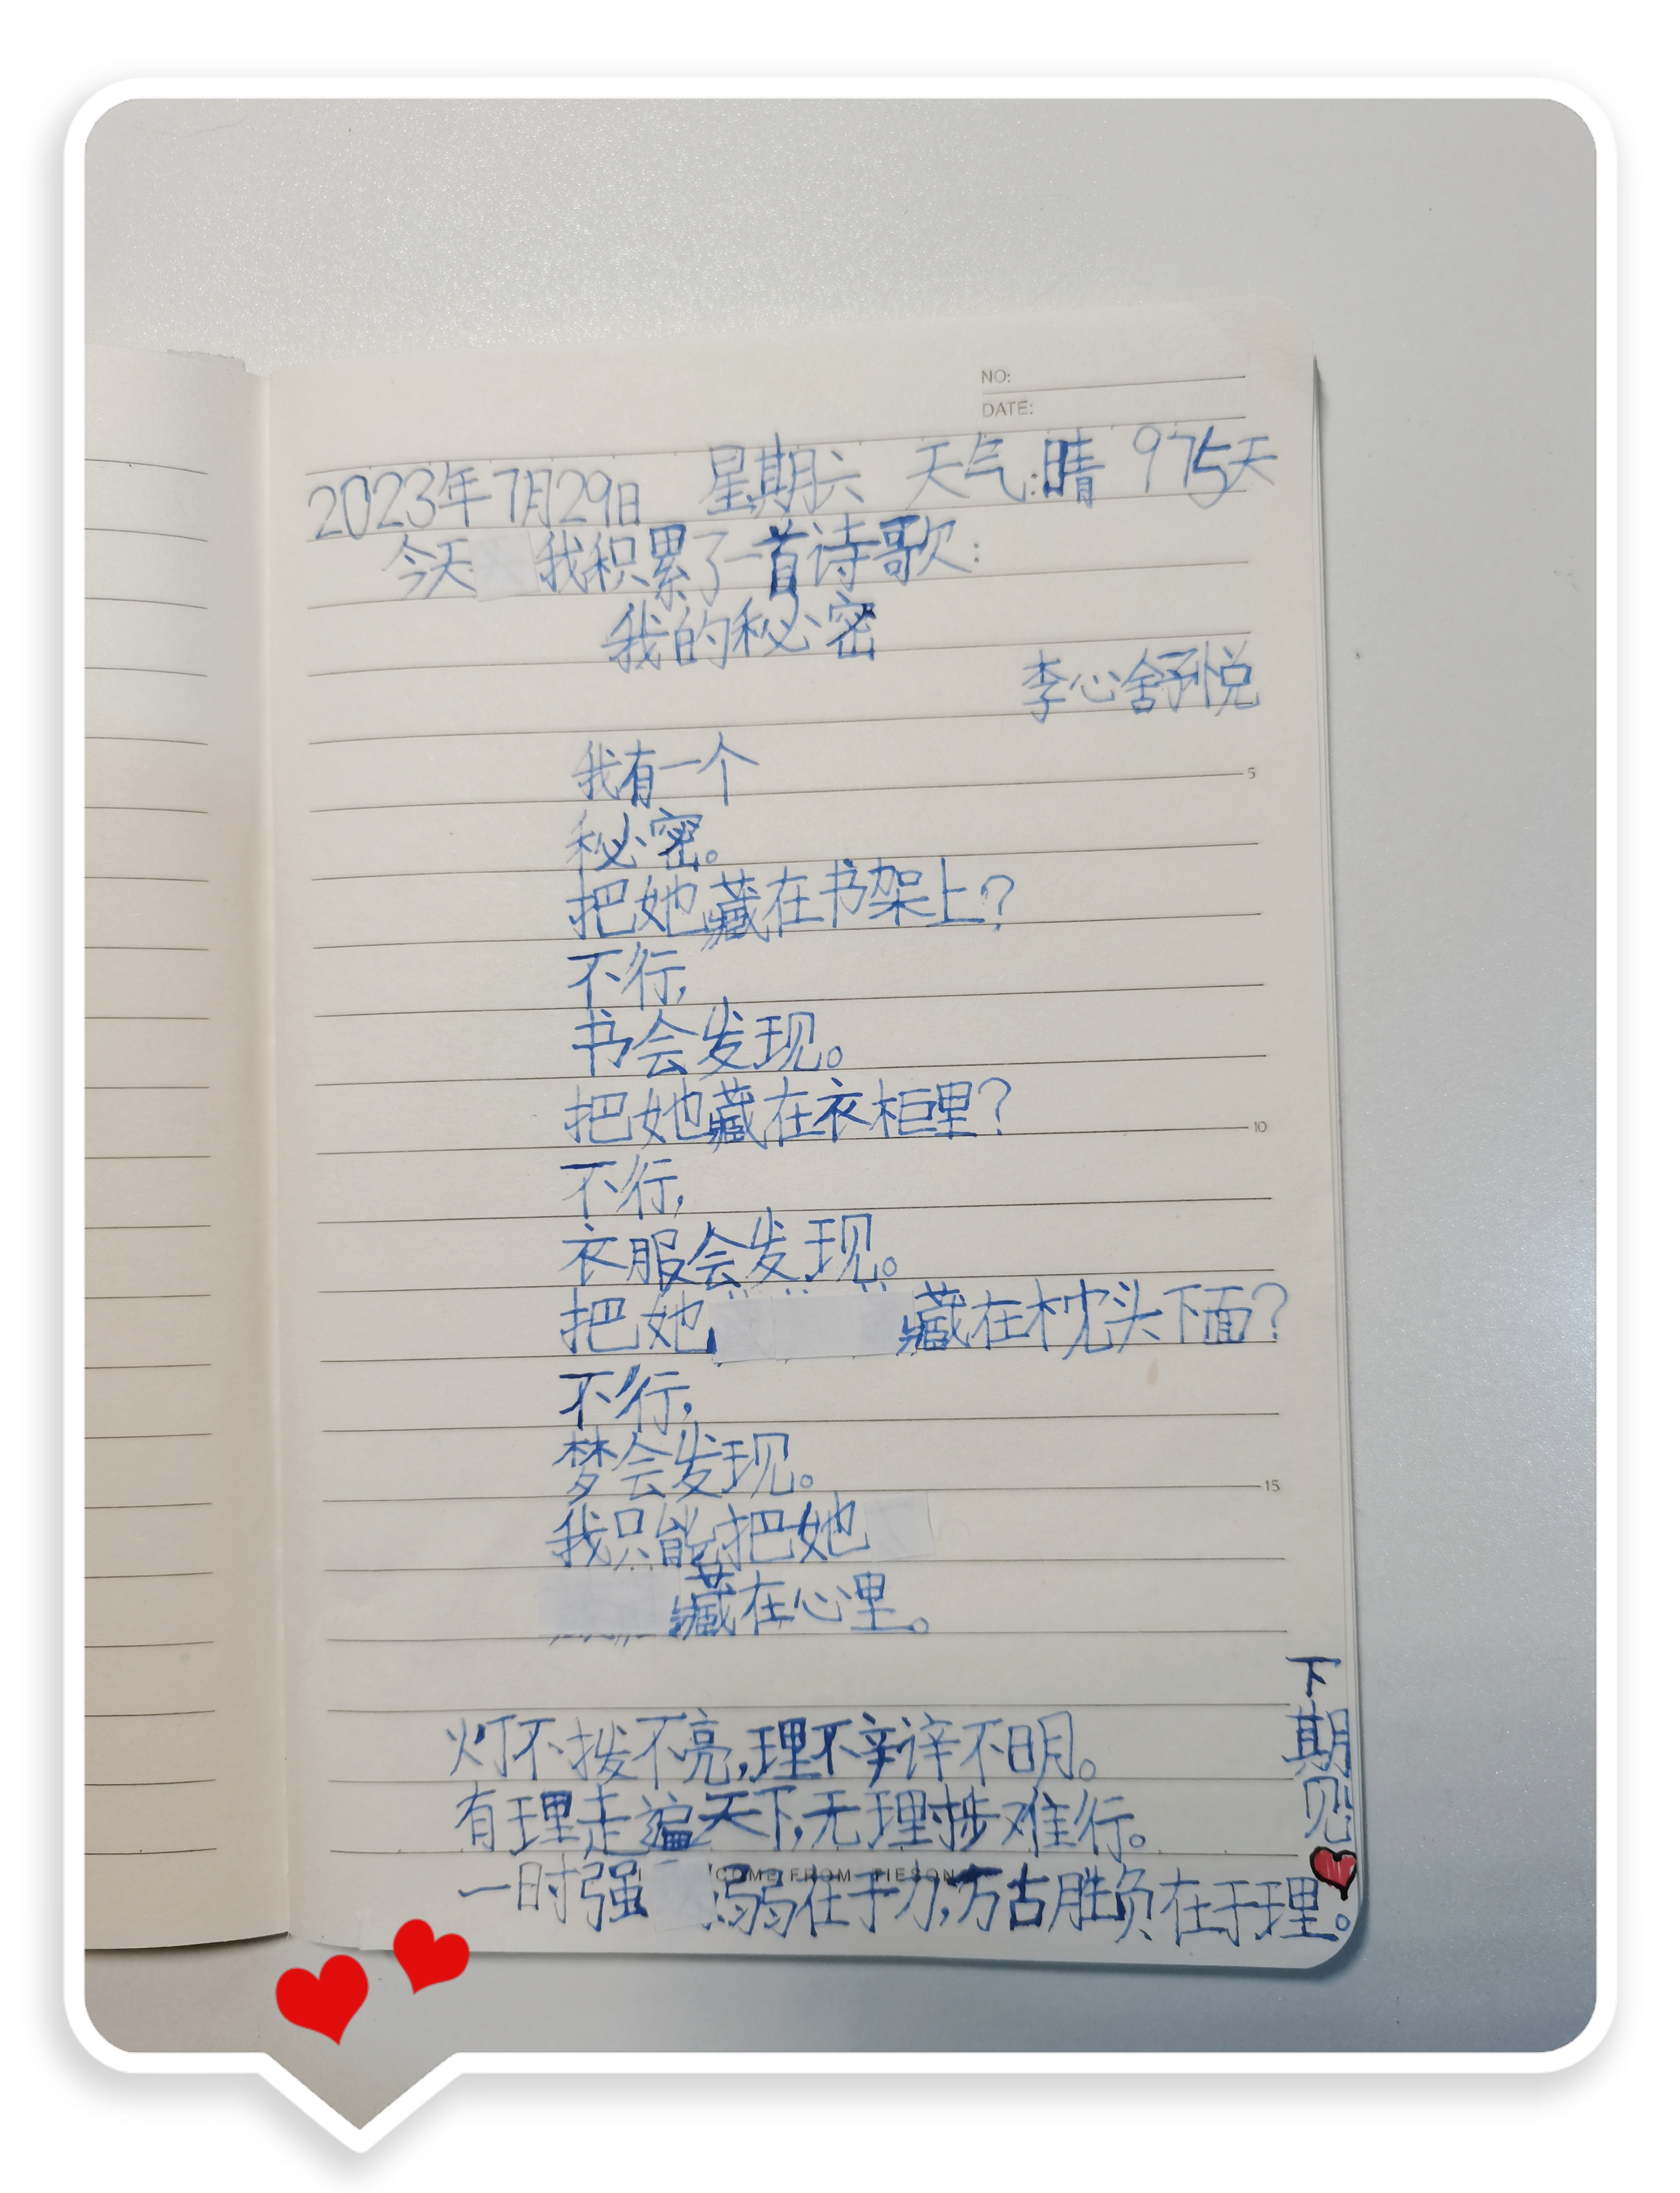 NO:
DATE:
2023年7月29日 星期六 天气:晴 975天
今天 我积累了一首诗歌:
我的秘密
李心舒悦
我有一个
秘密。
把她藏在书架上?
不行,
书会发现。
把她藏在衣柜里?
不行,
衣服会发现。
把她 藏在枕头下面?
不行,
梦会发现。
我只能把她
藏在心里。
灯不拨不亮,理不辩不明。
有理走遍天下,无理 难行。
COME FROM
一时强 弱在于力,万古胜负在于理。
下期见
5
10
15